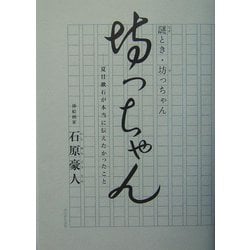 謎とき・坊っちゃん
坊っちゃん
夏目漱石が本当に伝えたかったこと
挿絵画家
石原豪人